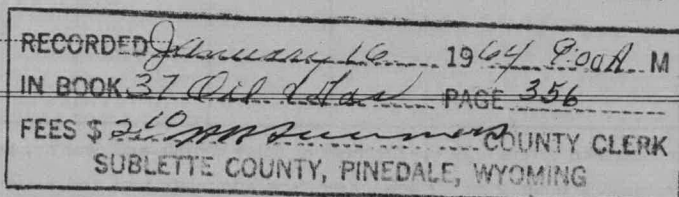 RECORDED January 16 1964 9:00 A. M
IN BOOK 37 Oil & Gas PAGE 356
FEES $ 2.10 COUNTY CLERK
SUBLETTE COUNTY, PINEDALE, WYOMING